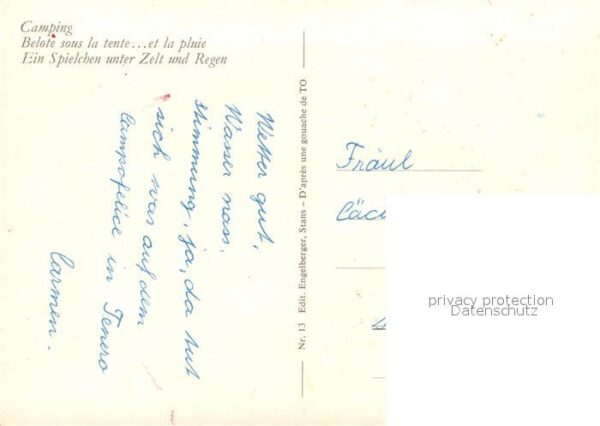 Camping
Belote sous la tente...et la pluie
Ein Spielchen unter Zelt und Regen
Wetter gut,
Wasser nass,
Stimmung, ja, da tut
sich was auf dem
Campofelice in Tenero
Carmen.
Nr. 13 Edit. Engelberger, Stans – D'après une gouache de TO
Fräul
Cäc
privacy protection
Datenschutz